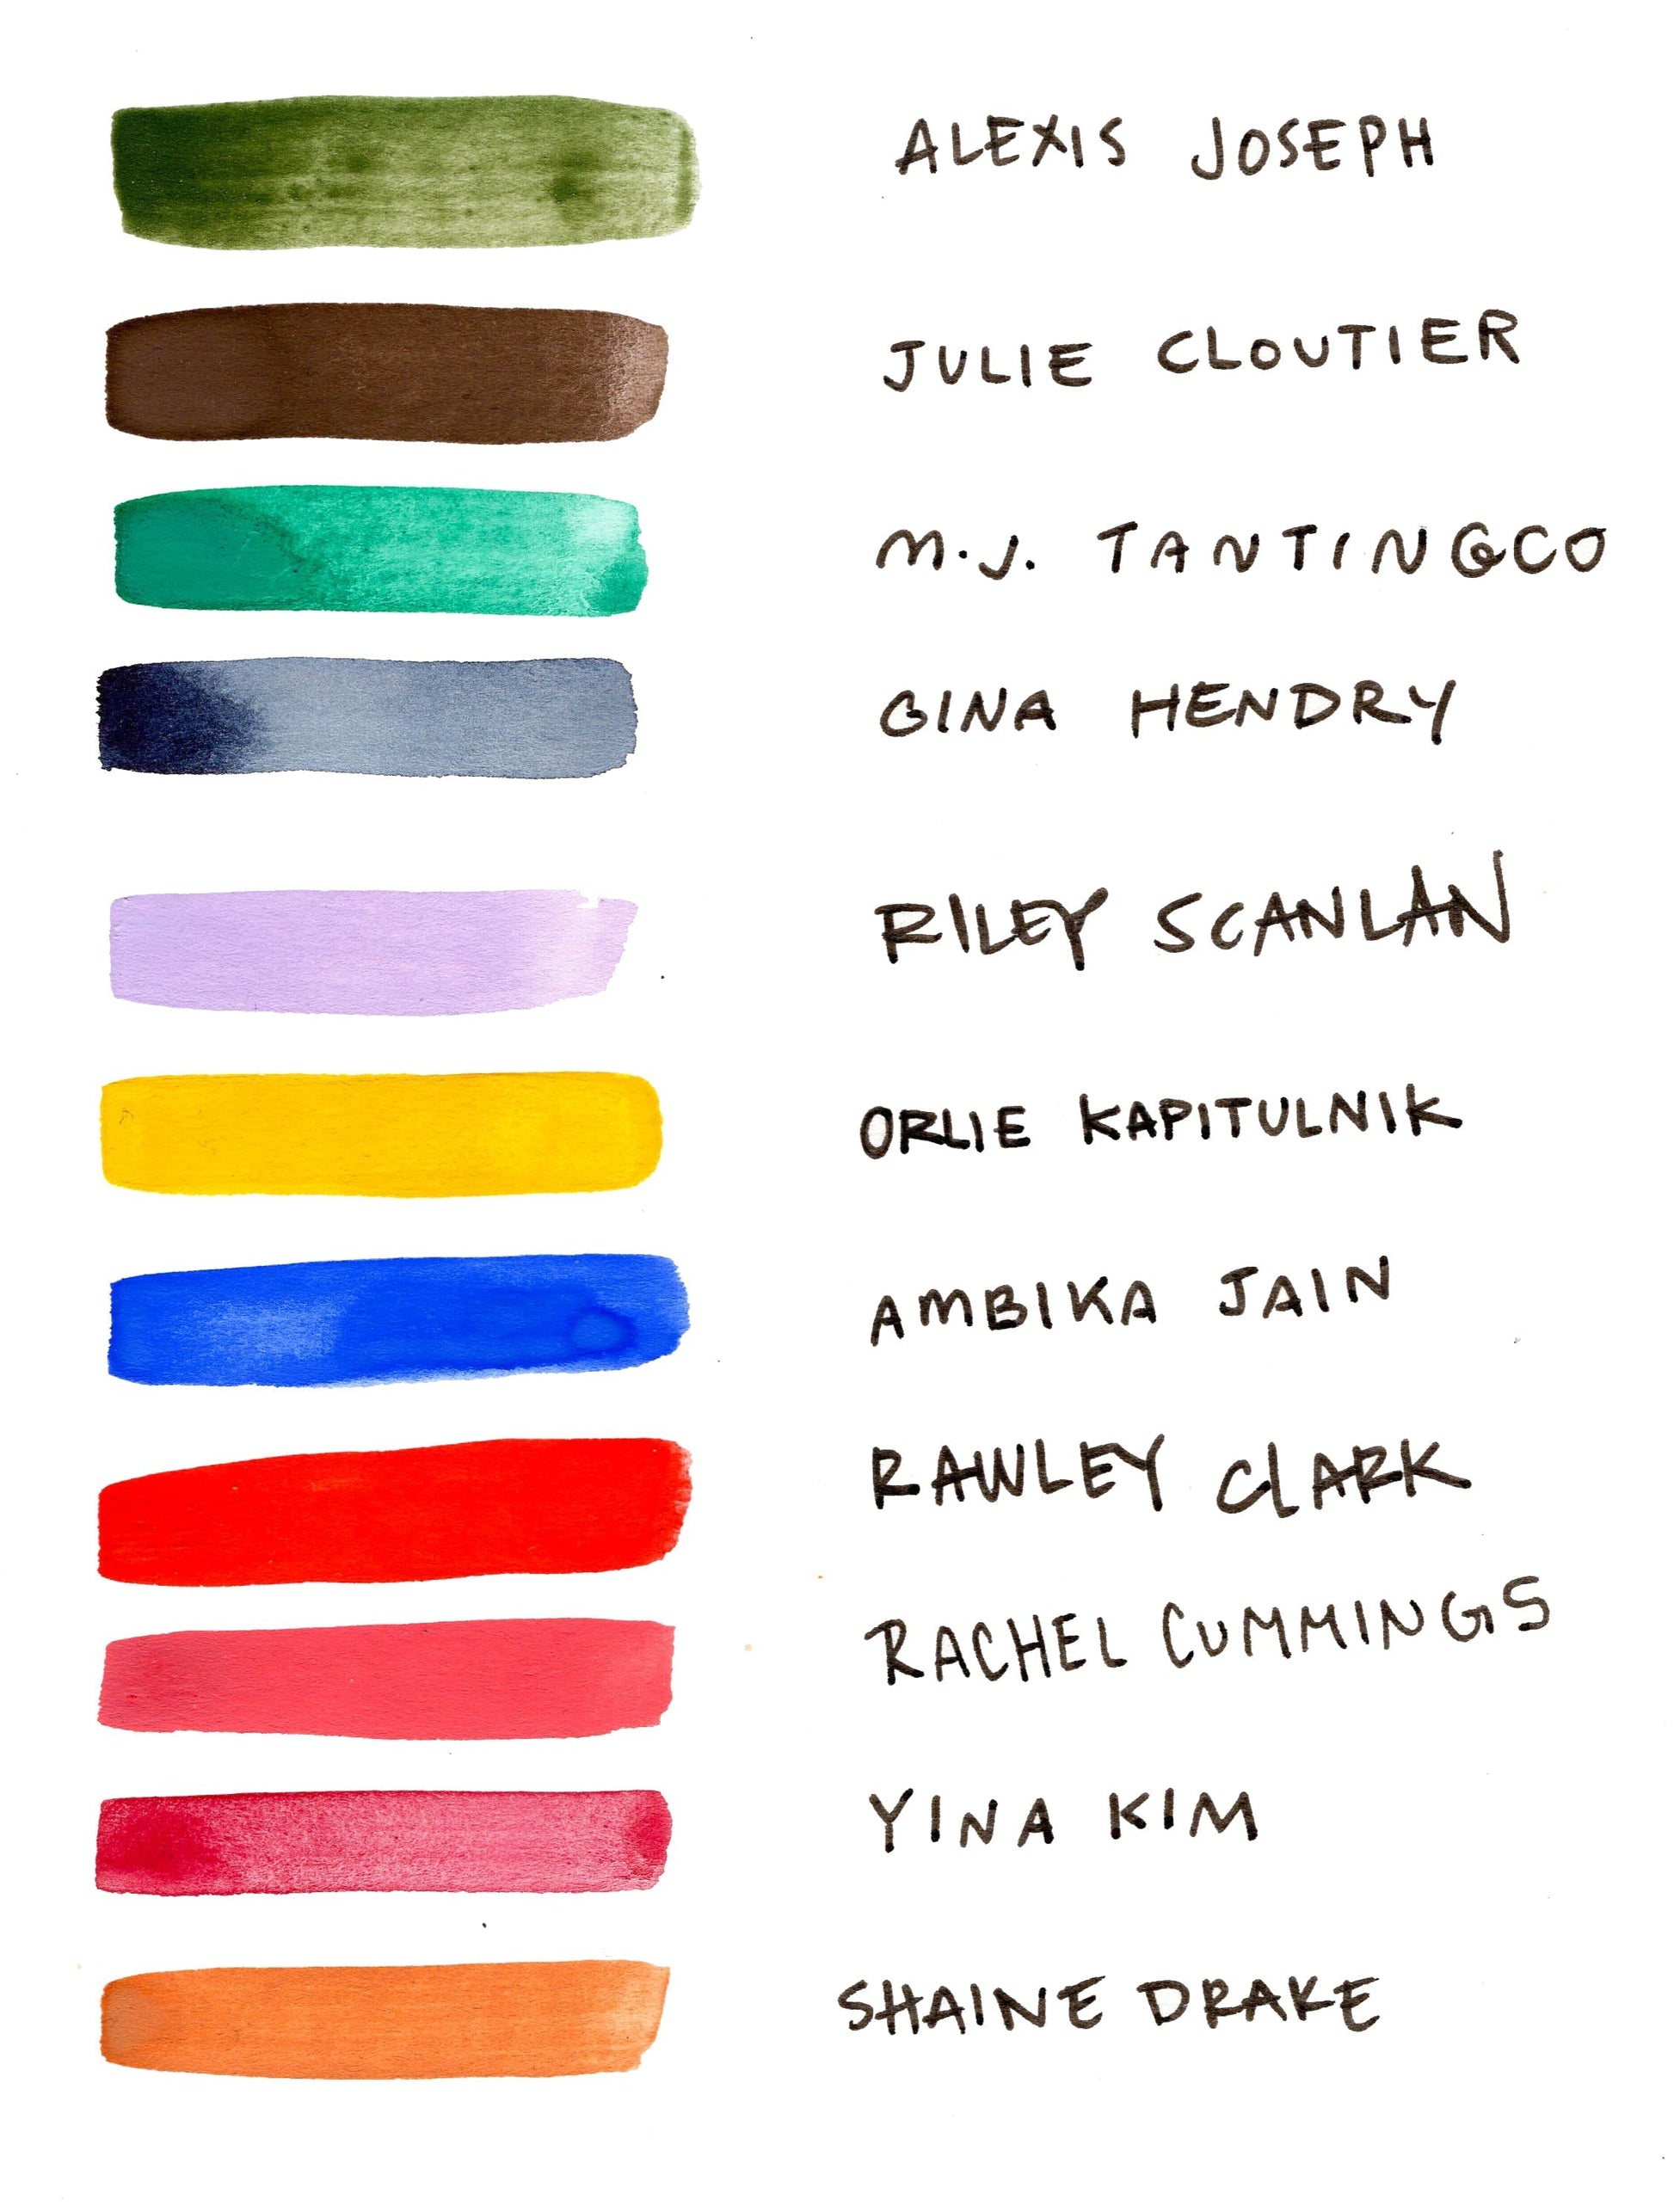 ALEXIS JOSEPH
JULIE CLOUTIER
M.J. TANTINGCO
GINA HENDRY
RILEY SCANLAN
ORLIE KAPITULNIK
AMBIKA JAIN
RAWLEY ClARK
RACHEL CUMMINGS
YINA KIM
SHAINE DRAKE